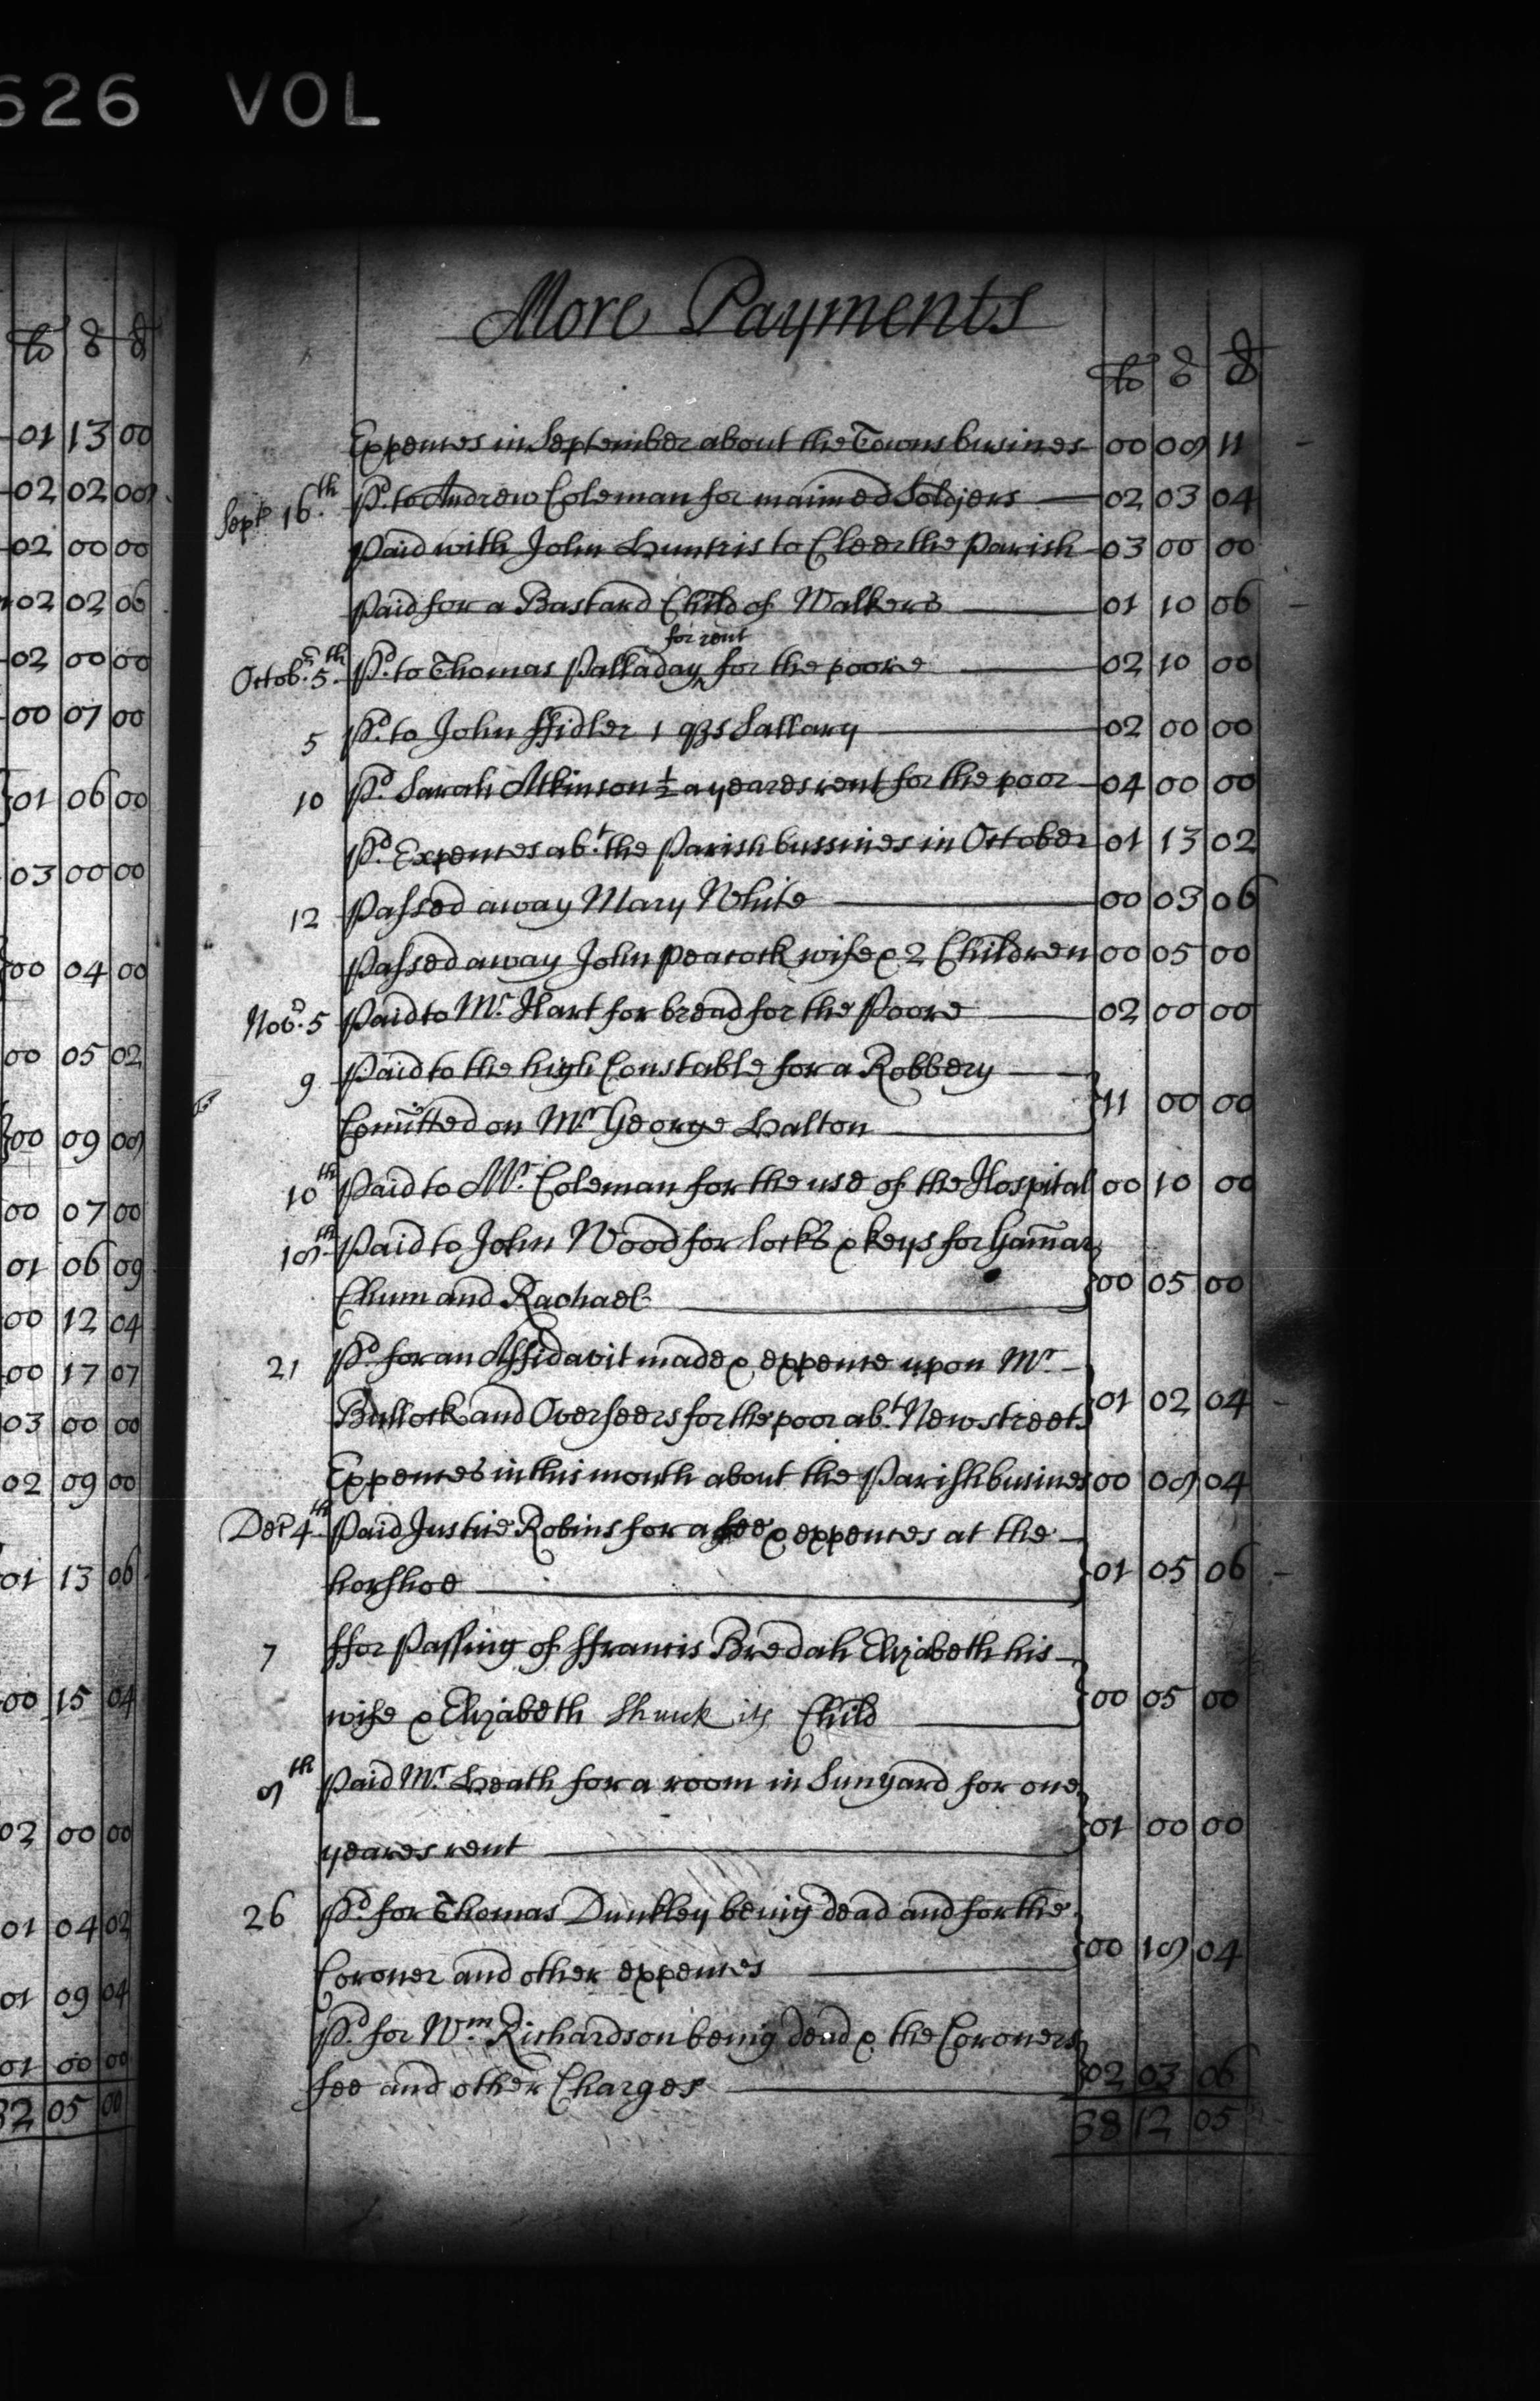 626 VOL
lb s d
01 13 00
02 02 08
02 00 00
02 02 06
02 00 00
00 07 00
01 06 00
03 00 00
00 04 00
00 05 02
00 09 08
00 07 00
01 06 09
00 12 04
00 17 07
03 00 00
02 09 00
01 13 06
00 15 04
02 00 00
01 04 02
01 09 04
01 00 00
32 05 00
More Payments
lb s d
Expences in September about the Towns busines 00 08 11
Sept 16th Pd. to Andrew Coleman for maimed Soldjers 02 03 04
Paid with John Huntris to Cleer the Parish 03 00 00
Paid for a Bastard Child of Walkers 01 10 06
for rent
Octobr. 5th. Pd. to Thomas Palladay ^ for the poore 02 10 00
5 Pd. to John ffidler 1 qrs Sallary 02 00 00
10 Pd. Sarah Atkinson ½ a yeares rent for the poor 04 00 00
Pd. Expences abt. the Parish bussines in October 01 13 02
12 Passed away Mary White 00 03 06
Passed away John Peacock wife & 2 Children 00 05 00
Nobr. 5 Paid to Mr. Hart for bread for the Poore 02 00 00
9 Paid to the high Constable for a Robbery
Comitted on Mr. George Halton 11 00 00
10th Paid to Mr. Coleman for the use of the Hospital 00 10 00
18th. Paid to John Wood for locks & keys for Gamar
Chum and Rachael 00 05 00
21 Pd. for an Affidavit made & expence upon Mr
Bullock and Overseers for the poor abt. New street 01 02 04
Expences in this month about the Parish busines 00 08 04
Decr 4th. Paid Justice Robins for a fee & expences at the
horshoe 01 05 06
7 ffor Passing of ffrancis Bredah Elizabeth his
wife & Elizabeth Child 00 05 00
8th Paid Mr. Heath for a room in Sunyard for one
yeares rent 01 00 00
26 Pd. for Thomas Dunkley being dead and for the
Coroner and other expences 00 18 04
Pd. for Wm. Richardson being dead & the Coroners
fee and other Charges 02 03 06
38 12 05